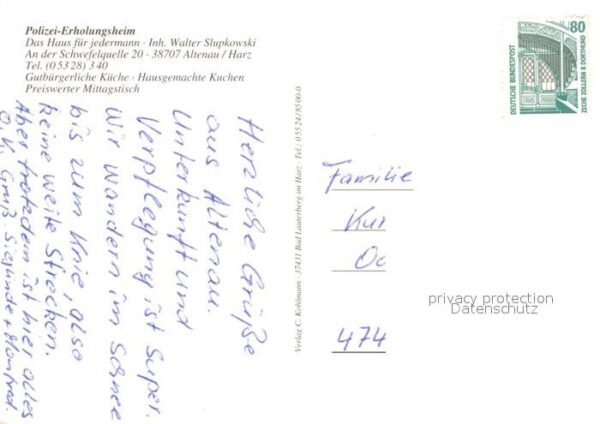 Polizei-Erholungsheim
Das Haus für jedermann · Inh. Walter Slupkowski
An der Schwefelquelle 20 · 38707 Altenau / Harz
Tel. (0 53 28) 3 40
Gutbürgerliche Küche · Hausgemachte Kuchen
Preiswerter Mittagstisch
Herzliche Grüße
aus Altenau.
Unterkunft und
Verpflegung ist Super.
Wir wandern im Schnee
bis zum Knie, also
keine weite Strecken.
Aber trotzdem ist hier alles
O.K. Gruß Sieglinde + Manfred.
Verlag C. Kohlmann · 37431 Bad Lauterberg im Harz · Tel.: 0 55 24/85 00-0
80
DEUTSCHE BUNDESPOST
ZECHE ZOLLERN II DORTMUND
Familie
Kur
Oc
474
privacy protection
Datenschutz